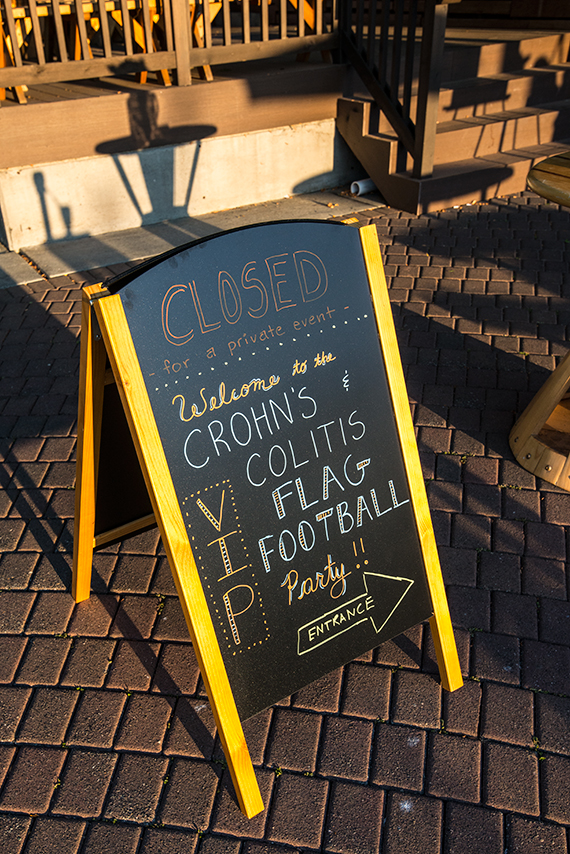 CLOSED
- for a private event -
Welcome to the
CROHN'S &
COLITIS
FLAG
FOOTBALL
Party!!
VIP
ENTRANCE